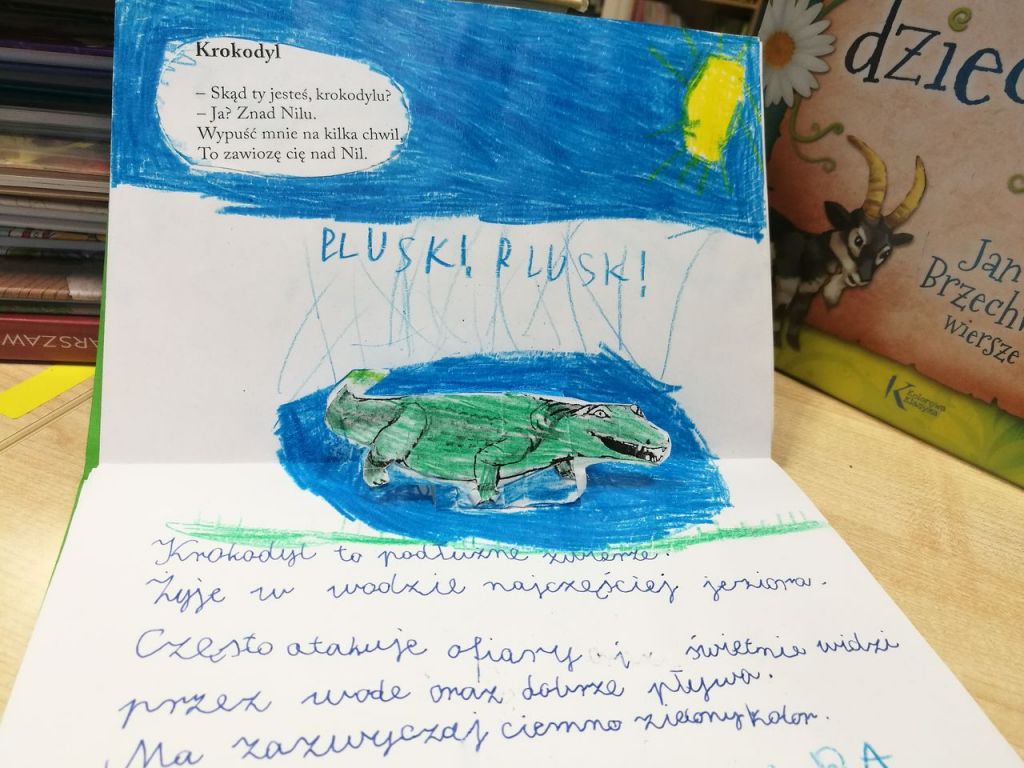 Krokodyl
– Skąd ty jesteś, krokodylu?
– Ja? Znad Nilu.
Wypuść mnie na kilka chwil,
To zawiozę cię nad Nil.
PLUSK! PLUSK!
Krokodyl to podłużne zwierze.
Żyje w wodzie najczęściej jeziora.
Często atakuje ofiary i świetnie widzi
przez wode oraz dobrze pływa.
Ma zazwyczaj ciemno zielony kolor.
dziec
Jan
Brzechw
wiersze
Kolorowa
Klasyka
ARSZAW